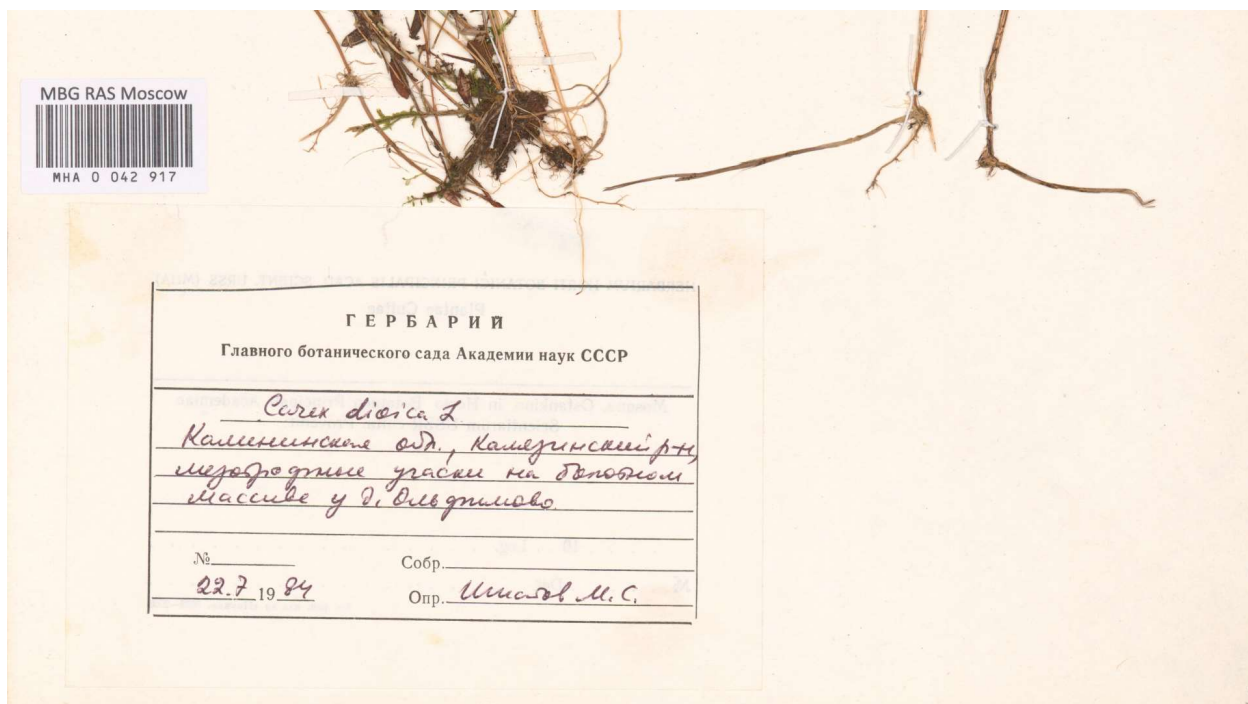 MBG RAS Moscow
MHA 0 042 917
ГЕРБАРИЙ
Главного ботанического сада Академии наук СССР
Carex dioica L
Калининская обл., Калязинский р-н,
мезотрофные участки на болотном
массиве у д.
№
Собр.
22.7 1984
Опр. Игнатов М.С.